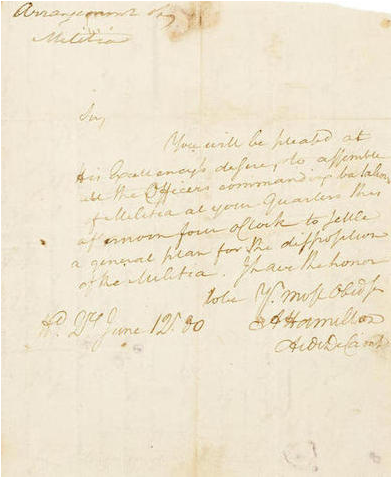 Arrangement of
Militia
Sir,
You will be pleased at
His Excellency's desire, to assemble
all the Officers commanding batalions
of Militia at your Quarters this
afternoon four oClock to settle
a general plan for the disposition
of the Militia. I have the honor
to be Yr. most Obedt
Hd. Qrs June 12. 80
A Hamilton
Aide De Camp